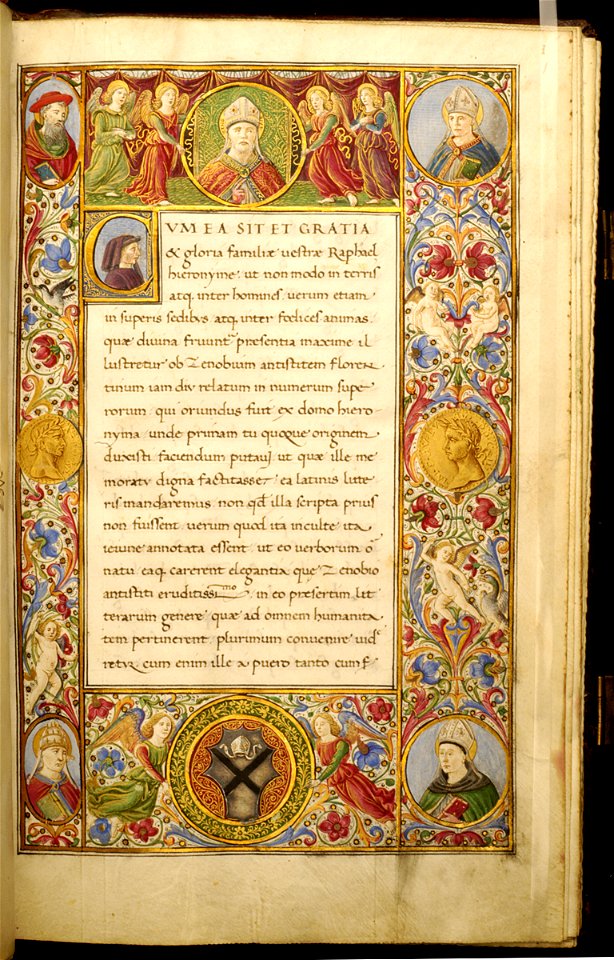 CVM EA SIT ET GRATIA
& gloria familiæ uestræ Raphael
hieronyme ut non modo in terris
atq inter homines, uerum etiam
in superis sedibus atq inter fœlices animas
quæ diuina fruunt presentia maxime il
lustretur ob Zenobium antistitem floren
tinum iam diu relatum in numerum supe
rorum qui oriundus fuit ex domo hiero
nyma unde primam tu quoque originem
duxisti faciendum putaui ut quæ ille me
moratu digna factitasset ea latinis litte
ris mandaremus non qd illa scripta prius
non fuissent, uerum quod ita inculte ita
ieiune annotata essent ut eo uerborum or
natu eaq carerent elegantia que Zenobio
antistiti eruditissimo in eo præsertim lit
terarum genere quæ ad omnem humanita
tem pertinerent plurimum conuenire uide
retur cum enim ille a puero tanto cum